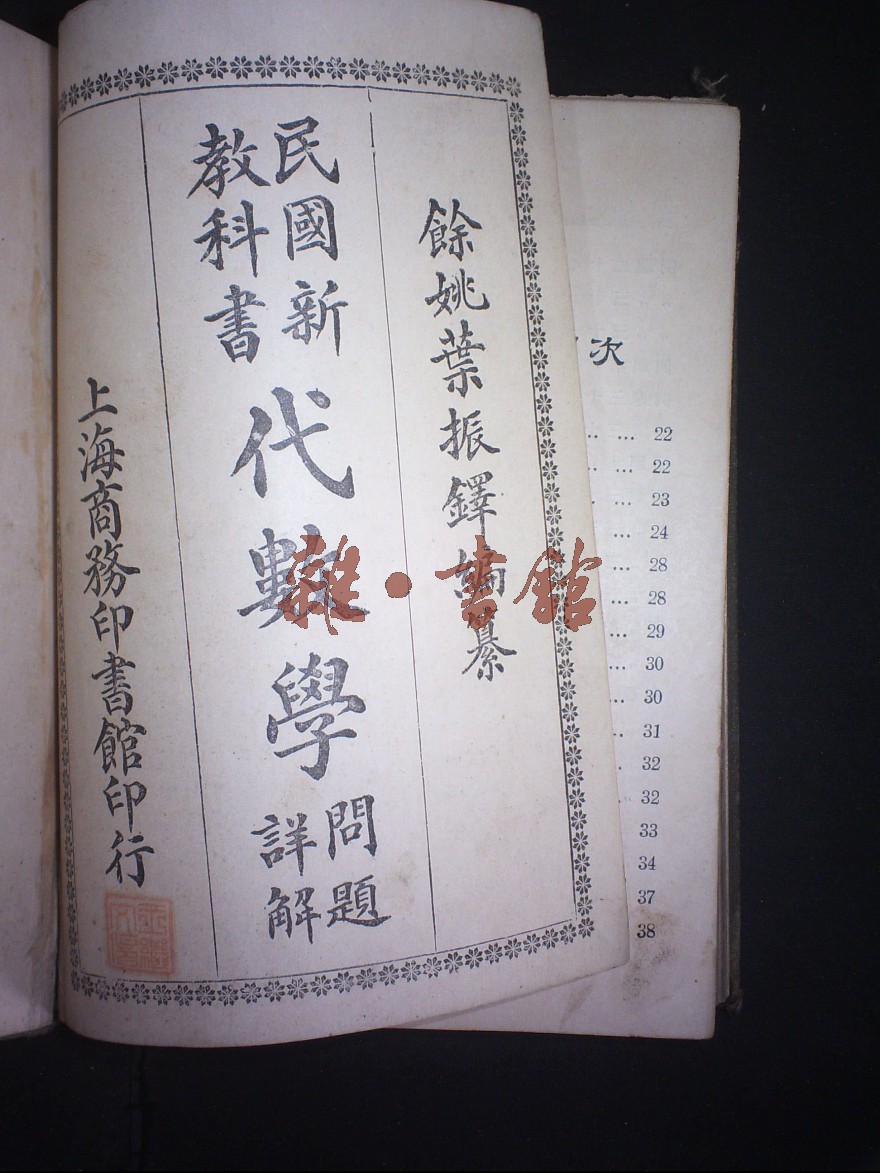 餘姚葉振鐸編纂
民國新
教科書
代數學
問題
詳解
上海商務印書館印行
雜·書館
次
... ... 22
... 22
... 23
... 24
... 28
... 28
... 29
... 30
... 30
... 31
32
... 32
33
34
37
38